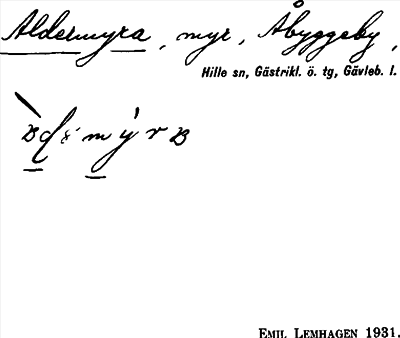 Aldermyra, myr, Åbyggeby,
Hille sn, Gästrikl. ö. tg, Gävleb. l.
EMIL LEMHAGEN 1931.